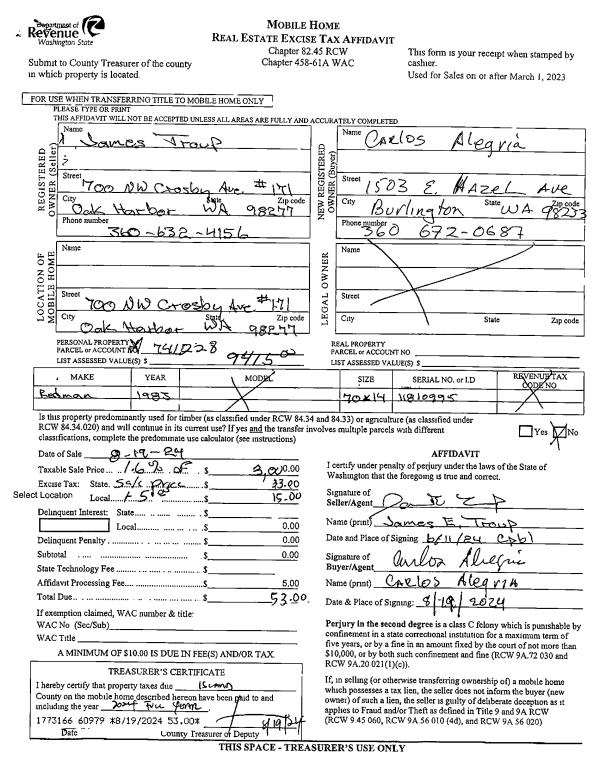 Department of
Revenue
Washington State
Submit to County Treasurer of the county
in which property is located.
MOBILE HOME
REAL ESTATE EXCISE TAX AFFIDAVIT
Chapter 82.45 RCW
Chapter 458-61A WAC
This form is your receipt when stamped by
cashier.
Used for Sales on or after March 1, 2023
FOR USE WHEN TRANSFERRING TITLE TO MOBILE HOME ONLY
PLEASE TYPE OR PRINT
THIS AFFIDAVIT WILL NOT BE ACCEPTED UNLESS ALL AREAS ARE FULLY AND ACCURATELY COMPLETED
REGISTERED
OWNER (Seller)
Name
James Troup
Street
700 NW Crosby Ave. #171
City State Zip code
Oak Harbor WA 98277
Phone number
360-632-4156
NEW REGISTERED
OWNER (Buyer)
Name
Carlos Alegria
Street
1503 E. Hazel Ave
City State Zip code
Burlington WA 98233
Phone number
360 672-0687
LOCATION OF
MOBILE HOME
Name
Street
700 NW Crosby Ave #171
City State Zip code
Oak Harbor WA 98277
LEGAL OWNER
Name
Street
City State Zip code
PERSONAL PROPERTY
PARCEL or ACCOUNT NO 741228
LIST ASSESSED VALUE(S) $ 9415.00
REAL PROPERTY
PARCEL or ACCOUNT NO
LIST ASSESSED VALUE(S) $
MAKE YEAR MODEL SIZE SERIAL NO. or I.D REVENUE TAX CODE NO
1983 70x14 11810995
Is this property predominantly used for timber (as classified under RCW 84.34 and 84.33) or agriculture (as classified under
RCW 84.34.020) and will continue in its current use? If yes and the transfer involves multiple parcels with different
classifications, complete the predominate use calculator (see instructions)
Yes No
Date of Sale 8-19-24
Taxable Sale Price 1.6% of $ 3,000.00
Excise Tax: State. Sale price $ 33.00
Select Location Local $ 15.00
Delinquent Interest: State $
Local $ 0.00
Delinquent Penalty $ 0.00
Subtotal $ 0.00
State Technology Fee $
Affidavit Processing Fee $ 5.00
Total Due $ 53.00
If exemption claimed, WAC number & title:
WAC No (Sec/Sub)
WAC Title
A MINIMUM OF $10.00 IS DUE IN FEE(S) AND/OR TAX.
AFFIDAVIT
I certify under penalty of perjury under the laws of the State of
Washington that the foregoing is true and correct.
Signature of
Seller/Agent
Name (print) James E. Troup
Date and Place of Signing
Signature of
Buyer/Agent Carlos Alegria
Name (print) Carlos Alegria
Date & Place of Signing: 8/19/2024
Perjury in the second degree is a class C felony which is punishable by
confinement in a state correctional institution for a maximum term of
five years, or by a fine in an amount fixed by the court of not more than
$10,000, or by both such confinement and fine (RCW 9A.72 030 and
RCW 9A.20 021(1)(c)).
If, in selling (or otherwise transferring ownership of) a mobile home
which possesses a tax lien, the seller does not inform the buyer (new
owner) of such a lien, the seller is guilty of deliberate deception as it
applies to Fraud and/or Theft as defined in Title 9 and 9A RCW
(RCW 9.45 060, RCW 9A 56 010 (4d), and RCW 9A 56 020)
TREASURER'S CERTIFICATE
I hereby certify that property taxes due Island
County on the mobile home described hereon have been paid to and
including the year
1773166 60979 8/19/2024 53.00
8/19/24
Date County Treasurer or Deputy
THIS SPACE - TREASURER'S USE ONLY